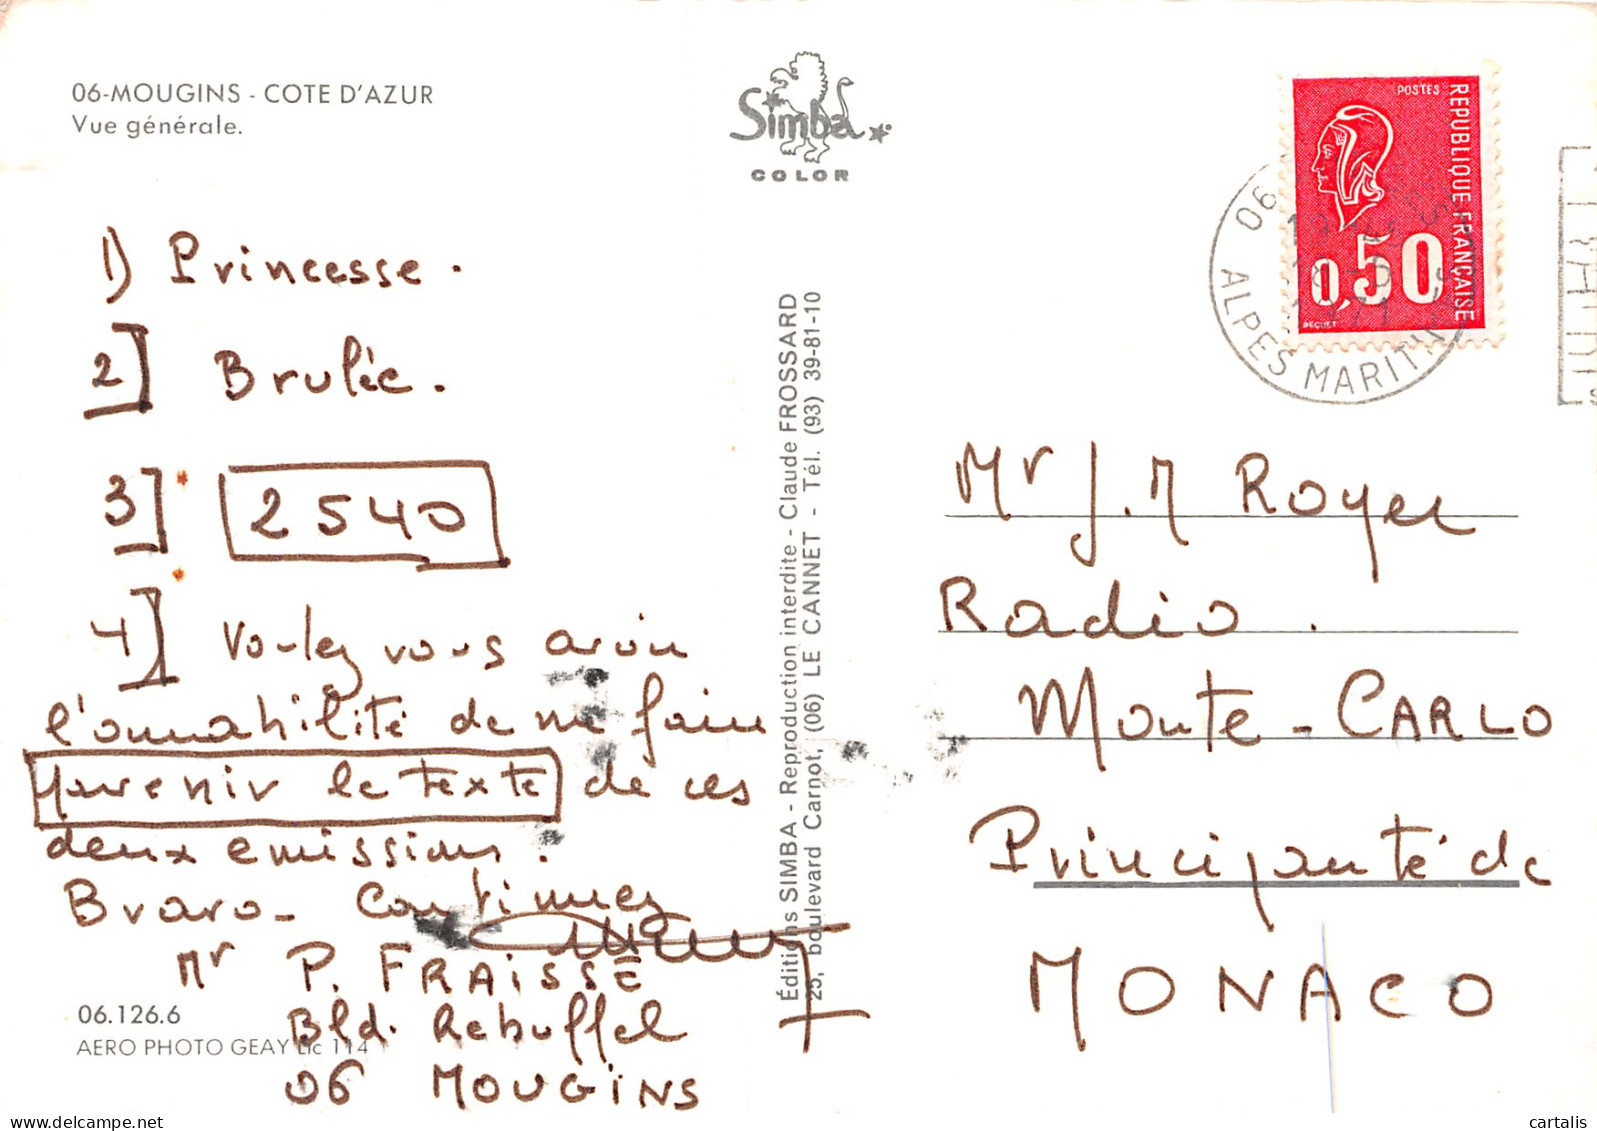 06-MOUGINS - COTE D'AZUR
Vue générale.
Simba
COLOR
POSTES
REPUBLIQUE FRANÇAISE
0,50
BEQUET
06
ALPES MARITIMES
1) Princesse.
2] Brulée.
3] 2540
4] Voulez vous avoir
l'ammabilité de me faire
parvenir le texte de ces
deux emissions.
Bravo - Continuez
Mr P. FRAISSE
Bld. Rebuffel
06 MOUGINS
06.126.6
AERO PHOTO GEAY Lic 114
Éditions SIMBA - Reproduction interdite - Claude FROSSARD
25, boulevard Carnot, (06) LE CANNET - Tél. (93) 39-81-10
Mr J. M Royer
Radio.
Monte-CARLO
Principauté de
MONACO
cartalis